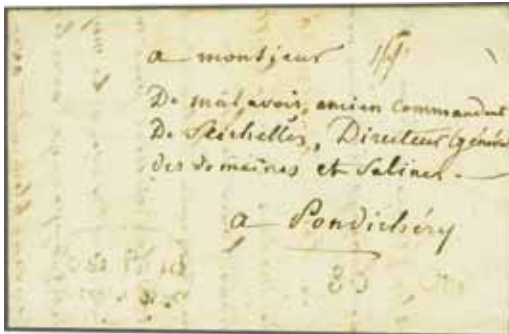 a monsieur
De malavois, ancien Commandant
De Seichelles, Directeur général
des domaines et Salines.
a Pondichéry